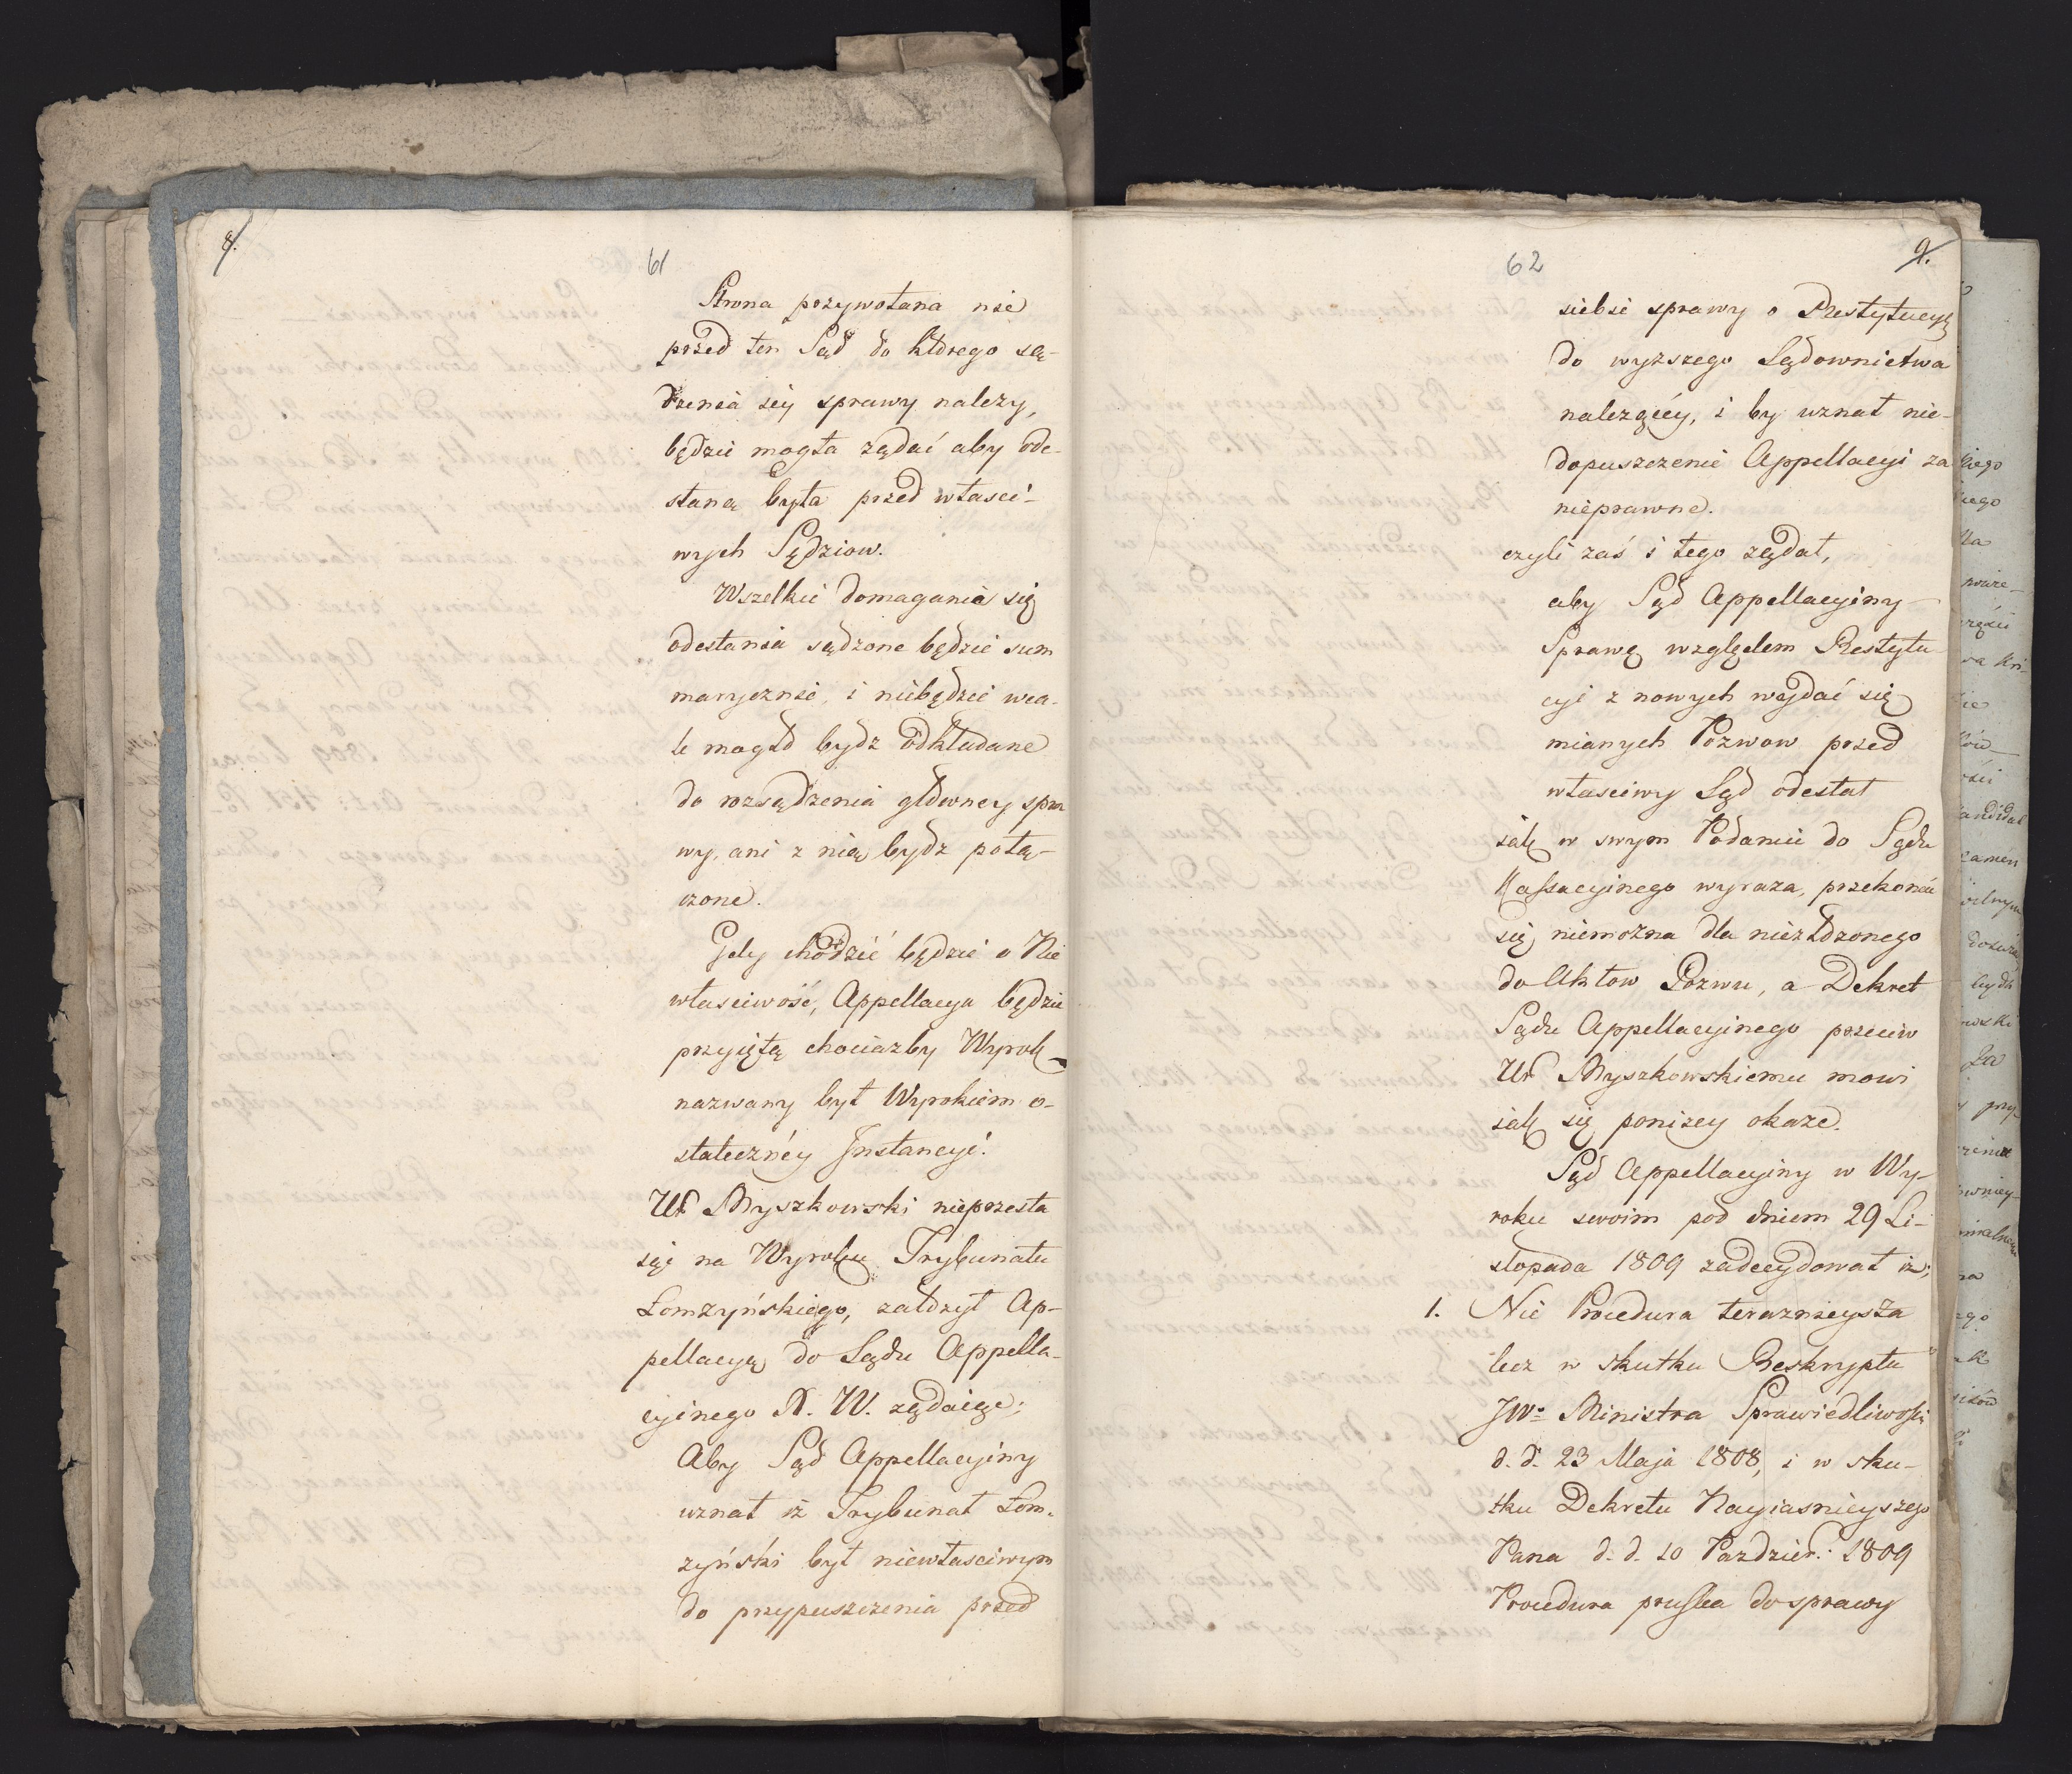 8.
61
Strona pozywołana nie
przed ten Sąd do którego są-
dzenia iey sprawy nalezy,
będzie mogła ządać aby ode-
słaną była przed własci-
wych Sędziow.
Wszelkie domagania się
odesłania sądzone będzie sum
marycznie, i niebędzie wca-
le mogło bydz odkładane
do rozsądzenia główney spra
wy, ani z nią bydz połą-
czone.
Gdy chodzić będzie o Nie
właściwość, Appellacya będzie
przyiętą chociazby Wyrok
nazwany był Wyrokiem o-
stateczney Instancyi.
Ur Myszkowski nieprzesta
iąc na Wyroku Trybunału
Łomzyńskiego, załozył Ap-
pellacyą do Sądu Appella-
cyinego X. W. ządaiąc;
Aby Sąd Appellacyiny
uznał iz Trybunał Łom-
zyński był niewłasciwym
do przypuszczenia przed
62
9.
siebie sprawy o Restytucyą
do wyzszego Sądownictwa
nalezącey, i by uznał nie-
dopuszczenie Appellacyi za
nieprawne.
czyli zaś i tego ządał,
aby Sąd Appellacyiny
Sprawę względem Restytu
cyi z nowych wydać się
mianych Pozwow przed
własciwy Sąd odesłał
iak w swym Podaniu do Sądu
Kassacyinego wyraza, przekonać
się niemozna dla niezłozonego
do Aktow Pozwu, a Dekret
Sądu Appellacyinego przeciw
Ur Myszkowskiemu mowi
iak się ponizey okaze.
Sąd Appellacyiny w Wy-
roku swoim pod dniem 29 Li-
stopada 1809 zadecydował iz;
1. Nie Procedura teraznieysza
lecz w skutku Reskryptu
JWo Ministra Sprawiedliwości
d. d. 23 Maja 1808, i w sku-
tku Dekretu Nayiasnieyszego
Pana d. d. 10 Pazdzier: 1809
Procedura pruska do sprawy